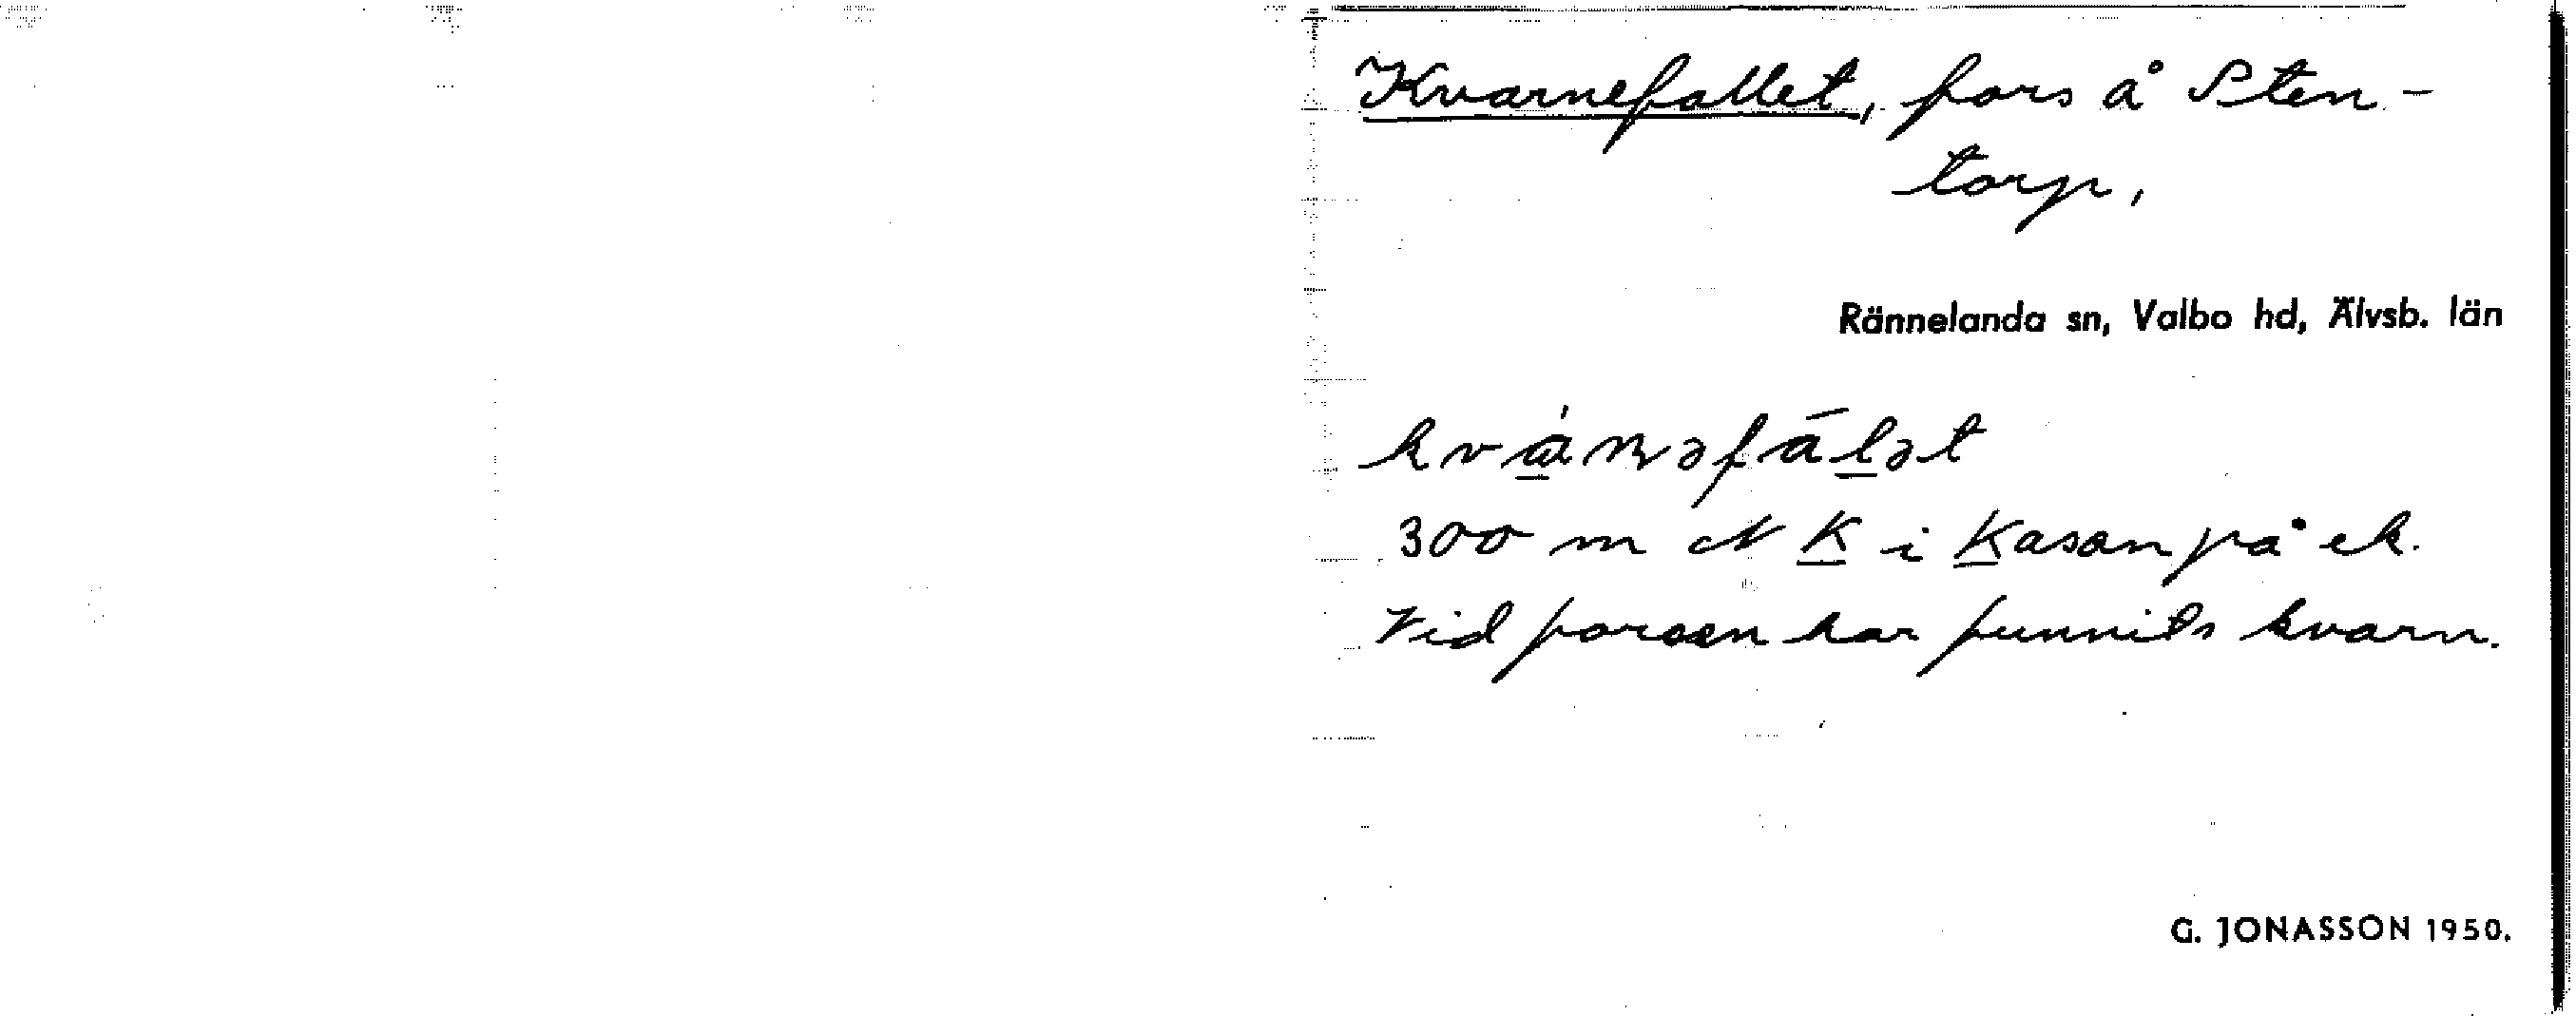 Kvarnefallet, fors å Sten-
torp,
Rännelanda sn, Valbo hd, Älvsb. län
300 m N K i Kasan på ek.
Vid forsen har funnits kvarn.
G. JONASSON 1950.